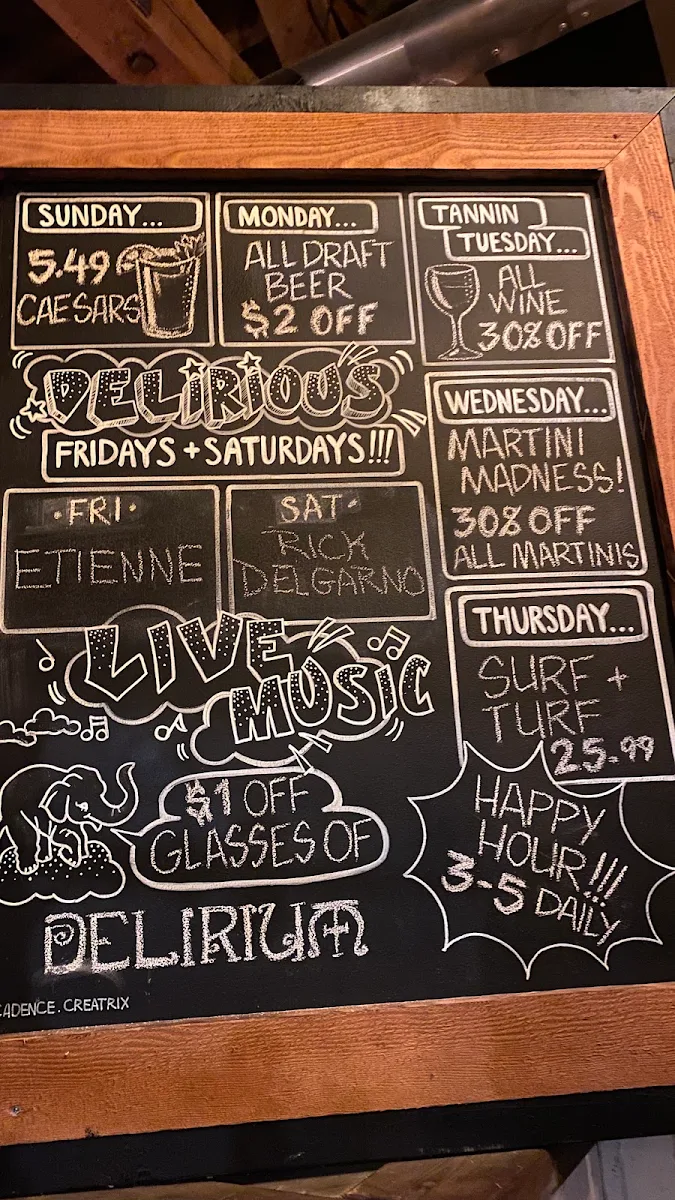 SUNDAY...
5.49
CAESARS
MONDAY...
ALL DRAFT
BEER
$2 OFF
TANNIN
TUESDAY...
ALL
WINE
30% OFF
DELIRIOUS
FRIDAYS + SATURDAYS!!!
·FRI·
ETIENNE
SAT·
RICK
DELGARNO
WEDNESDAY...
MARTINI
MADNESS!
30% OFF
ALL MARTINIS
LIVE
MUSIC
THURSDAY...
SURF +
TURF
25.99
$1 OFF
GLASSES OF
DELIRIUM
HAPPY
HOUR!!!
3-5 DAILY
CADENCE.CREATRIX